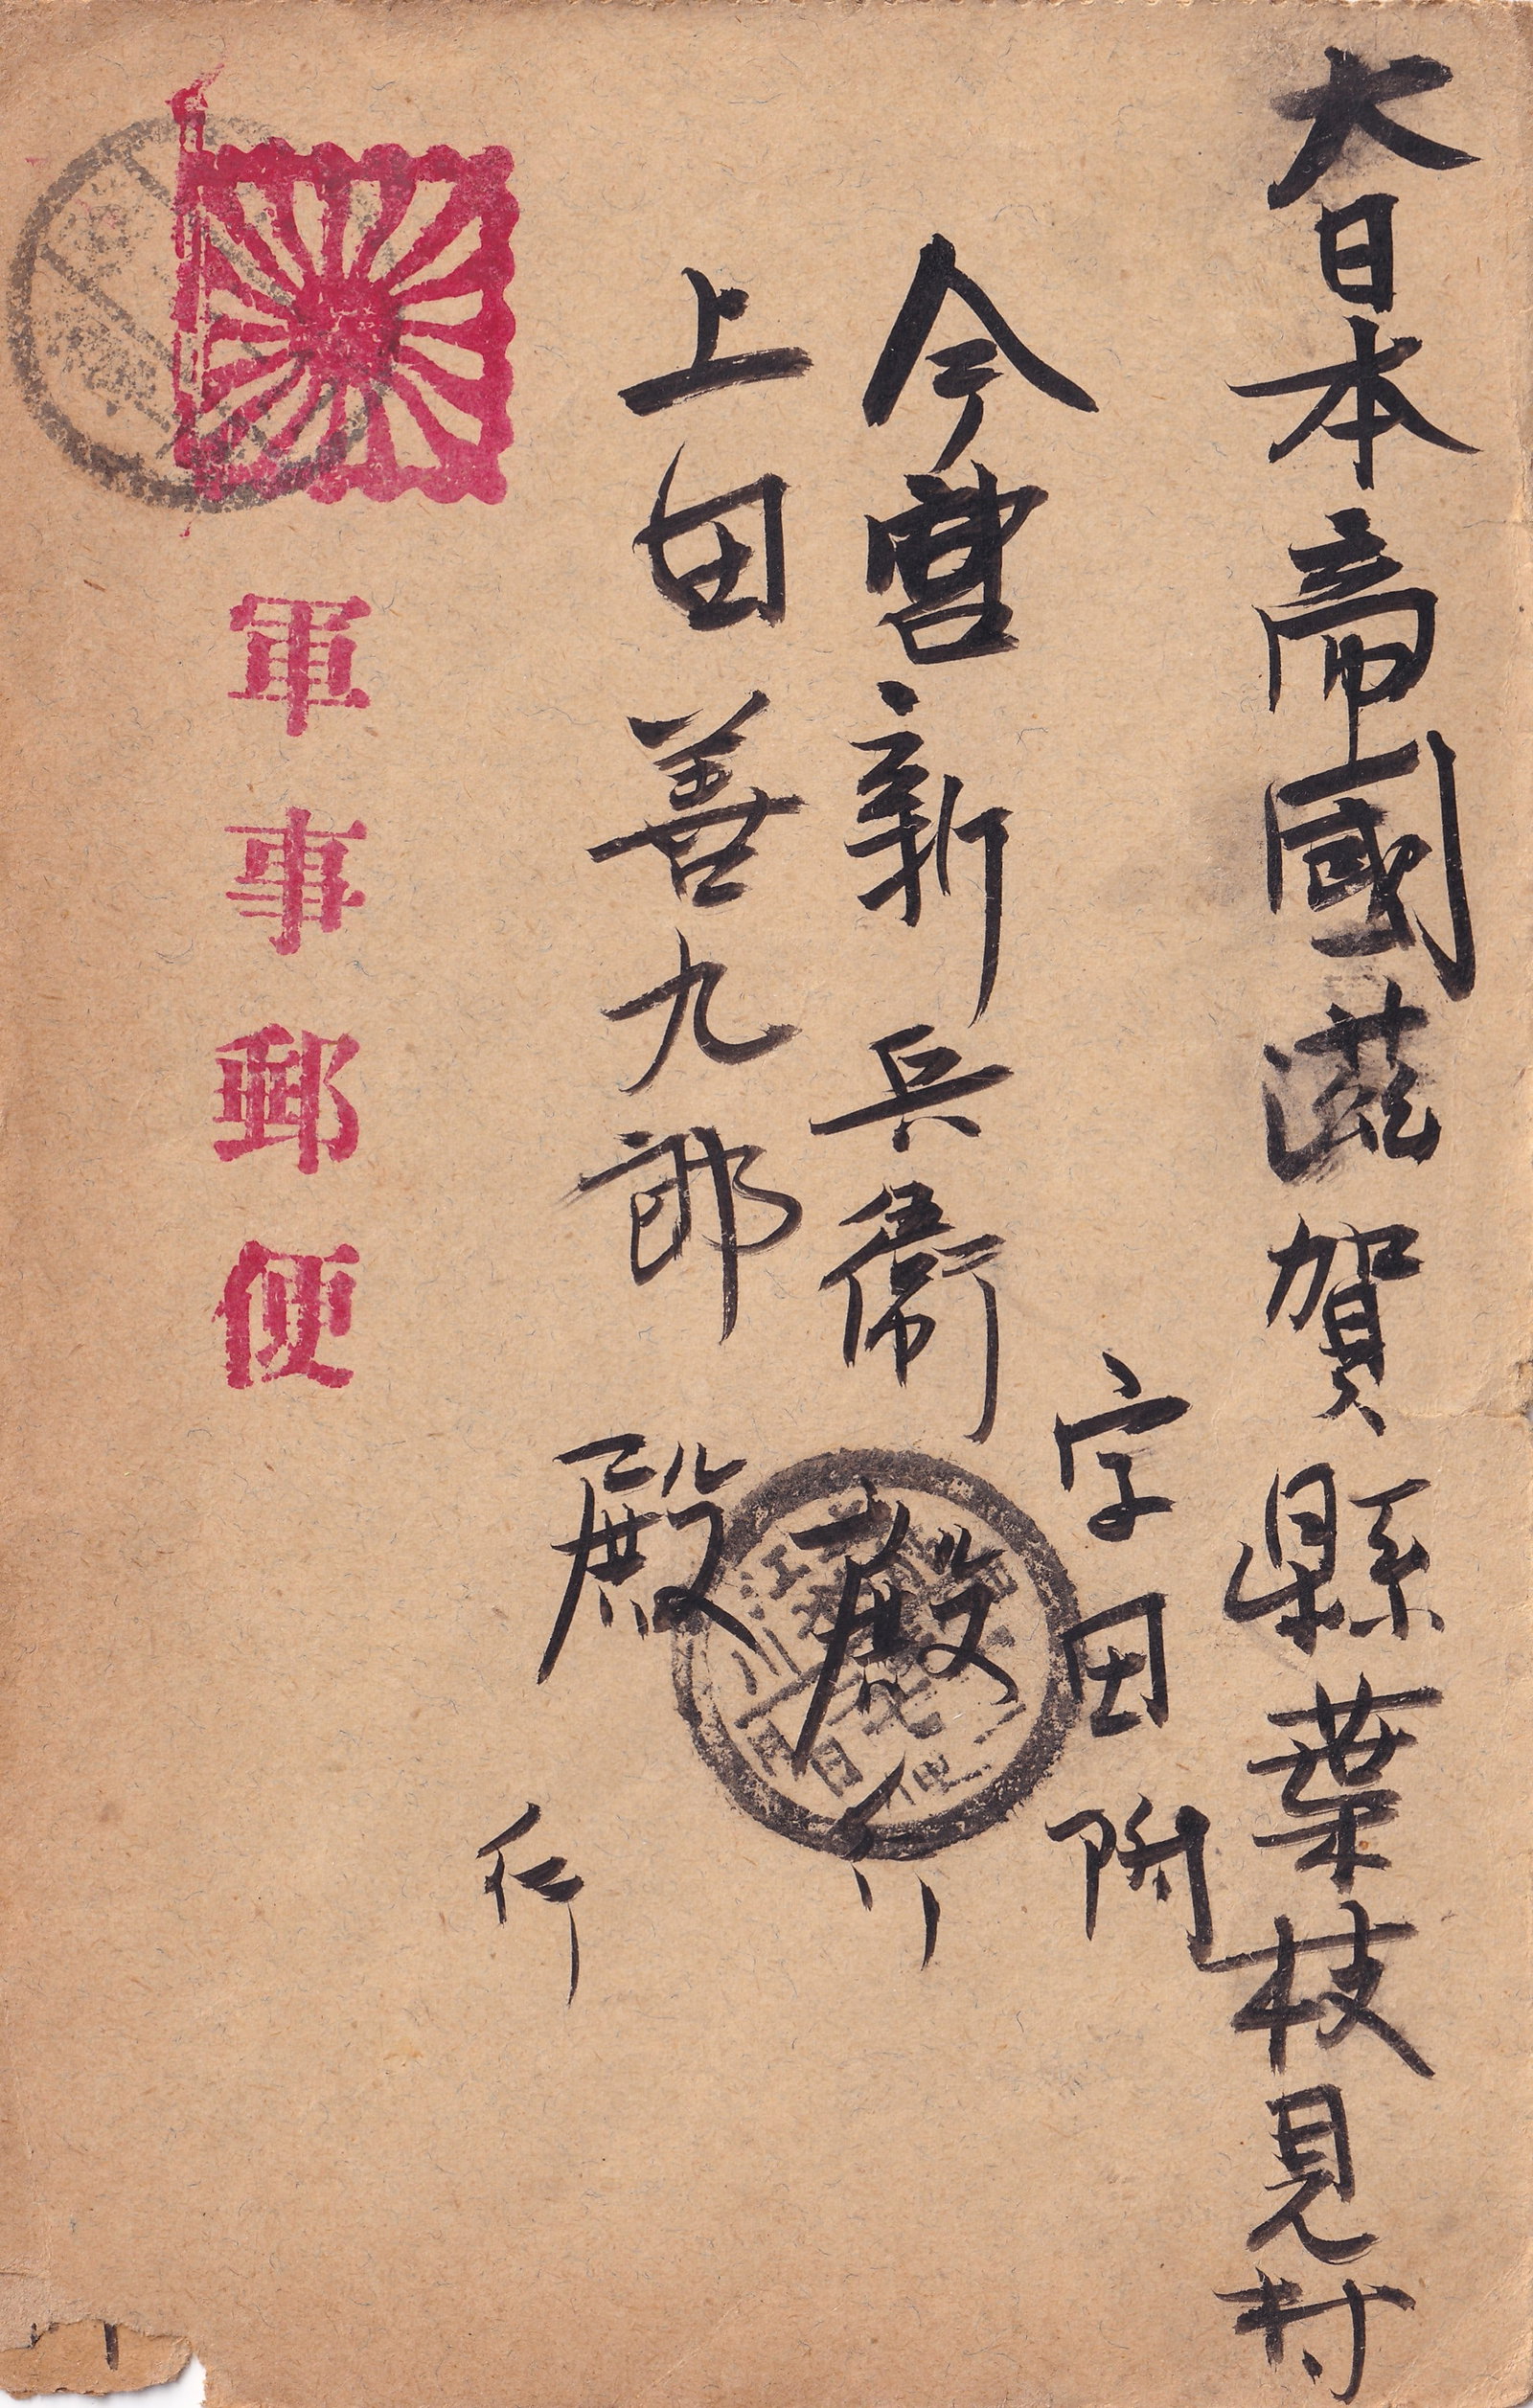 大日本帝國滋賀縣葉枝見村
字田附
今宮新兵衛殿行
上田善九郎殿行
軍事郵便
江川
月 日
便